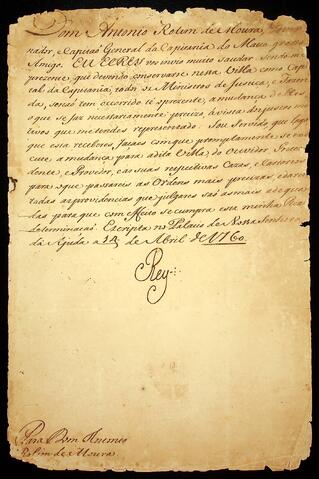 Dom Antonio Rolim de Moura, Gover-
nador, e Capitaõ General da Capitania do Mato grosso
Amigo. EU ELREY vos invio muito saudar. Sendo me
prezente, que devendo conservarse nessa Villa como Capi-
tal da Capitania, todos os Ministros de Justiça, e Fazen-
da, senaõ tem ocorrido até o prezente, a mudança delles
que se faz necessariamente precizo, á vista dos justos mo-
tivos que me tendes reprezentado. Sou servido que logo
que esta receberes, façaes com que promptamente se exe-
cute a mudança para a dita Villa do Ouvidor
dente, e Provedor, e as suas respectivas Cazas, e Cartorios
para o que passareis as Ordens mais precizas, e dareis
todas as providencias que julgares saõ as mais adequa-
das para que com effeito se cumpra esta minha Real
Determinaçaõ. Escripta no Palacio de Nossa Senhora
da Ajuda a 14 de Abril de 1760.
Rey
Para Dom Antonio
Rolim de Moura